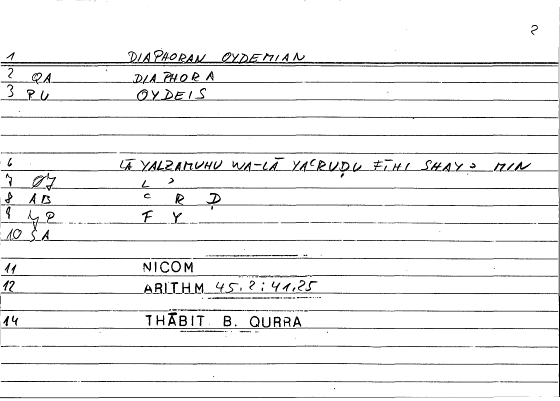 2
1 DIAPHORAN OYDEMIAN
2 QA DIAPHORA
3 PU OYDEIS
6 LĀ YALZAMUHU WA-LĀ YAʿRUḌU FĪHI SHAYʾ MIN
7 L ʾ
8 AB ʿ R Ḍ
9 F Y
10 ŠA
11 NICOM
12 ARITHM 45.2 ; 41.25
14 THĀBIT B. QURRA